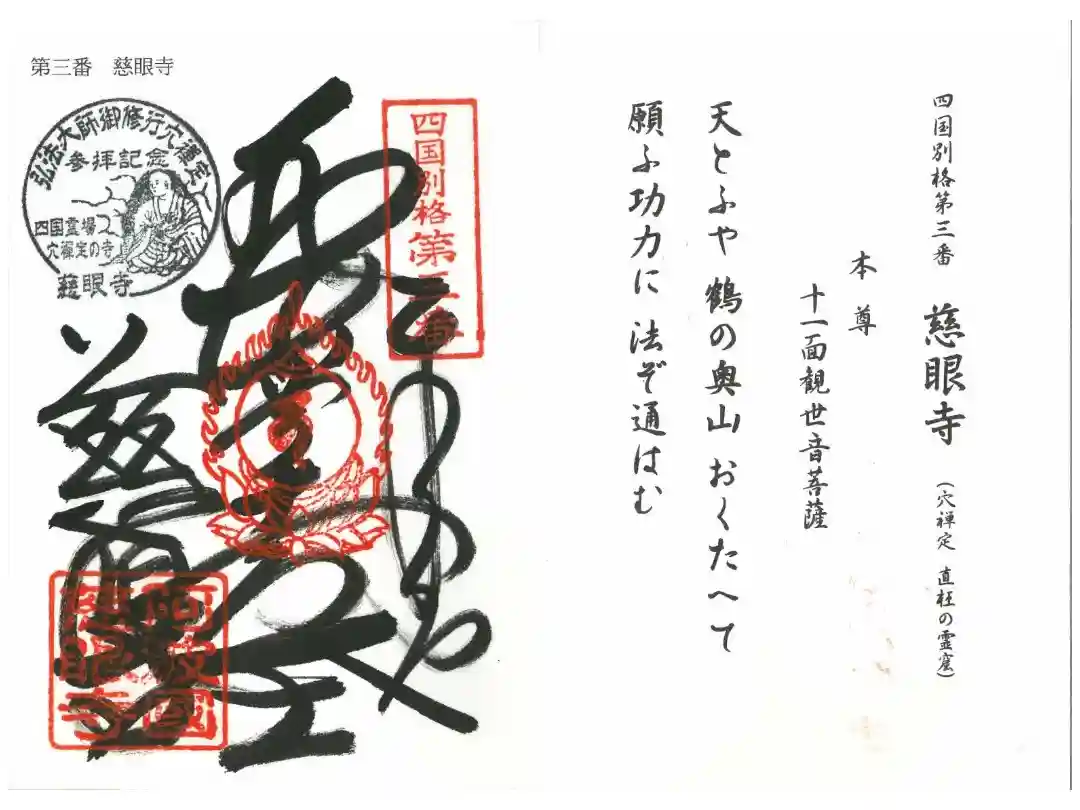 四国別格第三番 慈眼寺 (穴禅定 直枉の霊窟)
本尊
十一面観世音菩薩
天とふや 鶴の奥山 おくたへて
願ふ功力に 法ぞ通はむ
第三番 慈眼寺
弘法大師御修行穴禪定
参拝記念
四国霊場
穴禪定の寺
慈眼寺
四国別格第三番
慈眼寺
阿波國
慈眼寺